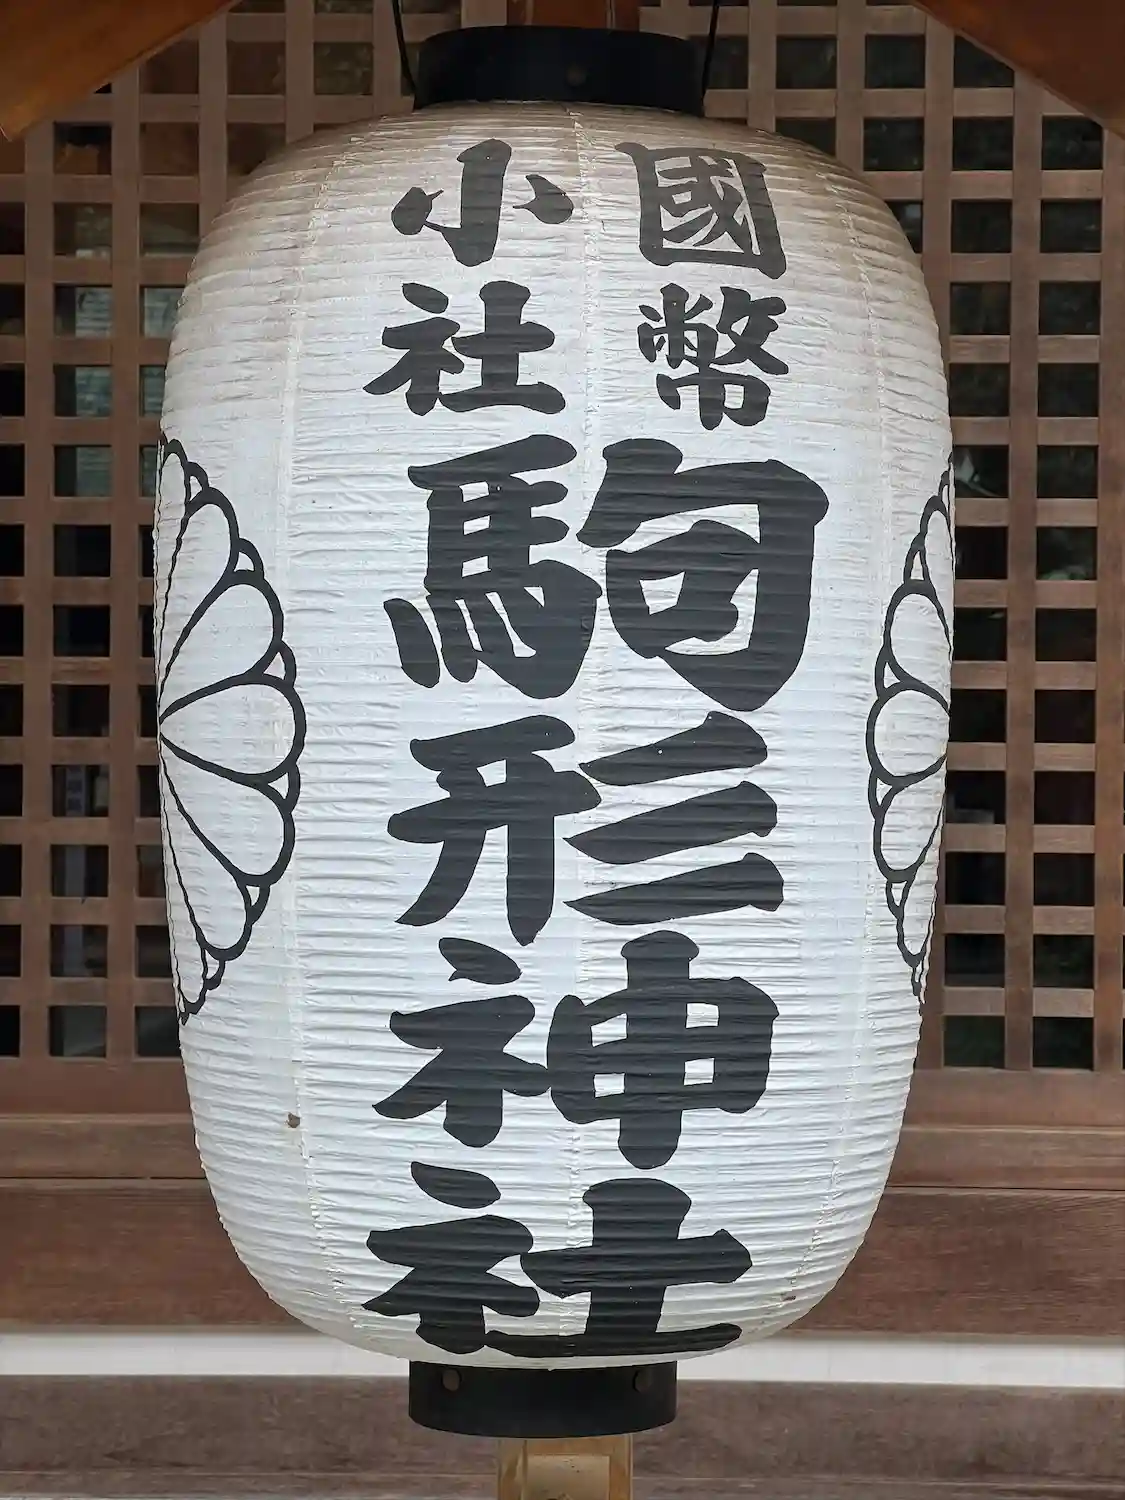 國幣
小社
駒形神社